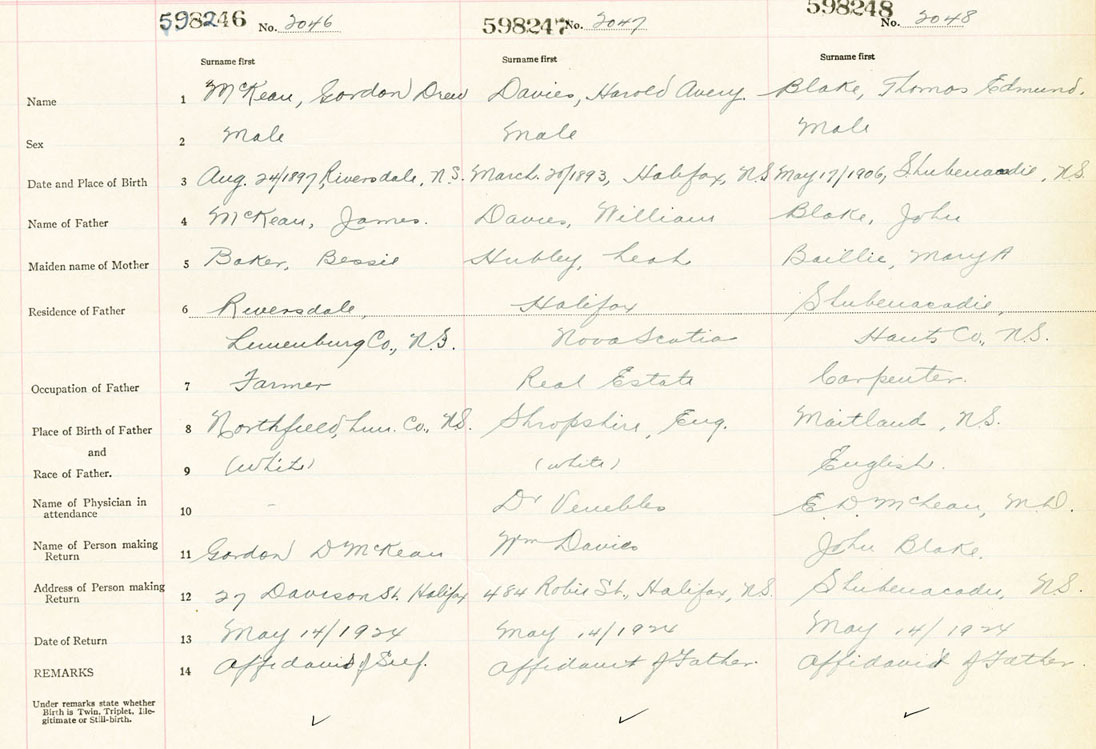 598246 No. 2046 598247 No. 2047 598248 No. 2048
Surname first Surname first Surname first
Name 1 McKean, Gordon Drew Davies, Harold Avery. Blake, Thomas Edmund.
Sex 2 Male Male Male
Date and Place of Birth 3 Aug. 24/1897, Riversdale, N.S. March. 20/1893, Halifax, N.S. May 17/1906, Shubenacadie, N.S.
Name of Father 4 McKean, James. Davies, William Blake, John
Maiden name of Mother 5 Baker, Bessie Hubley, Leah Baillie, Mary A
Residence of Father 6 Riversdale, Halifax Shubenacadie,
Lunenburg Co., N.S. Nova Scotia Hants Co., N.S.
Occupation of Father 7 Farmer Real Estate Carpenter.
Place of Birth of Father 8 Northfield, Lun. Co., N.S. Shropshire, Eng. Maitland, N.S.
and
Race of Father. 9 (White) (white) English.
Name of Physician in
attendance 10 - Dr Venebles E. D. McLean, M.D.
Name of Person making
Return 11 Gordon D McKean Wm Davies John Blake.
Address of Person making
Return 12 27 Davison St. Halifax 484 Robie St., Halifax, N.S. Shubenacadie, N.S.
Date of Return 13 May 14/1924 May 14/1924 May 14/1924
REMARKS 14 Affidavit of Self. Affidavit of Father. Affidavit of Father.
Under remarks state whether
Birth is Twin, Triplet, Ille-
gitimate or Still-birth. ✓ ✓ ✓